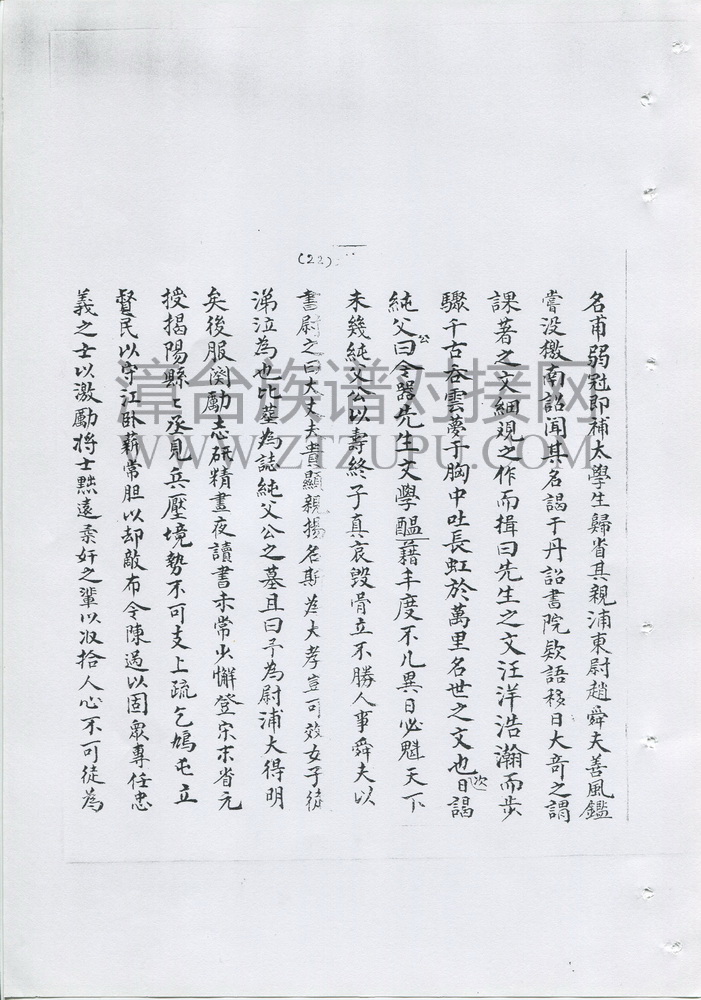 (22)
名甫弱冠即補太學生歸省其親浦東尉趙舜夫善風鑑
嘗没檄南詔闻其名謁于丹詔書院欵語移日大奇之謂
課著之文細观之作而揖曰先生之文汪洋浩瀚而步
驟千古吞雲夢于胸中吐長虹於萬里名世之文也次日謁
純父公曰令器先生文學醞藉丰度不凡異日必魁天下
未幾純父公以壽終子真哀毀骨立不勝人事舜夫以
書尉之曰大丈夫貴顯親揚名斯為大孝豈可效女子徒
涕泣為也比塟為誌純父公之墓且曰予為尉浦大得明
矣後服闋勵志研精晝夜讀書未常少懈登宋末省元
授揭陽縣〻丞見兵壓境勢不可支上疏乞鳩屯立
督民以守江卧薪常胆以却敵布令陳過以固眾專任忠
義之士以激勵将士黜遠柔奸之輩以収拾人心不可徒為
漳台族谱对接网
WWW.ZTZUPU.COM